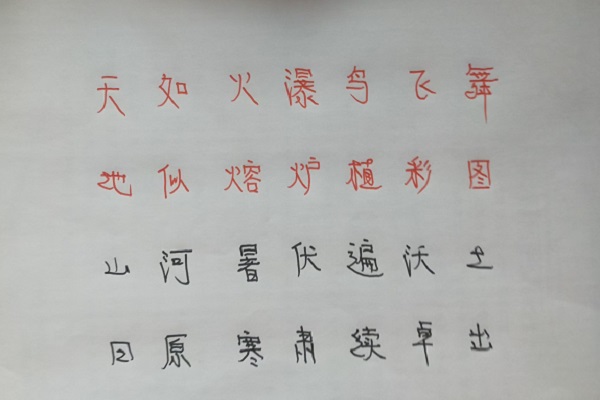 天如火瀑鸟飞舞
地似熔炉植彩图
山河暑伏遍沃土
田原寒肃续卓出